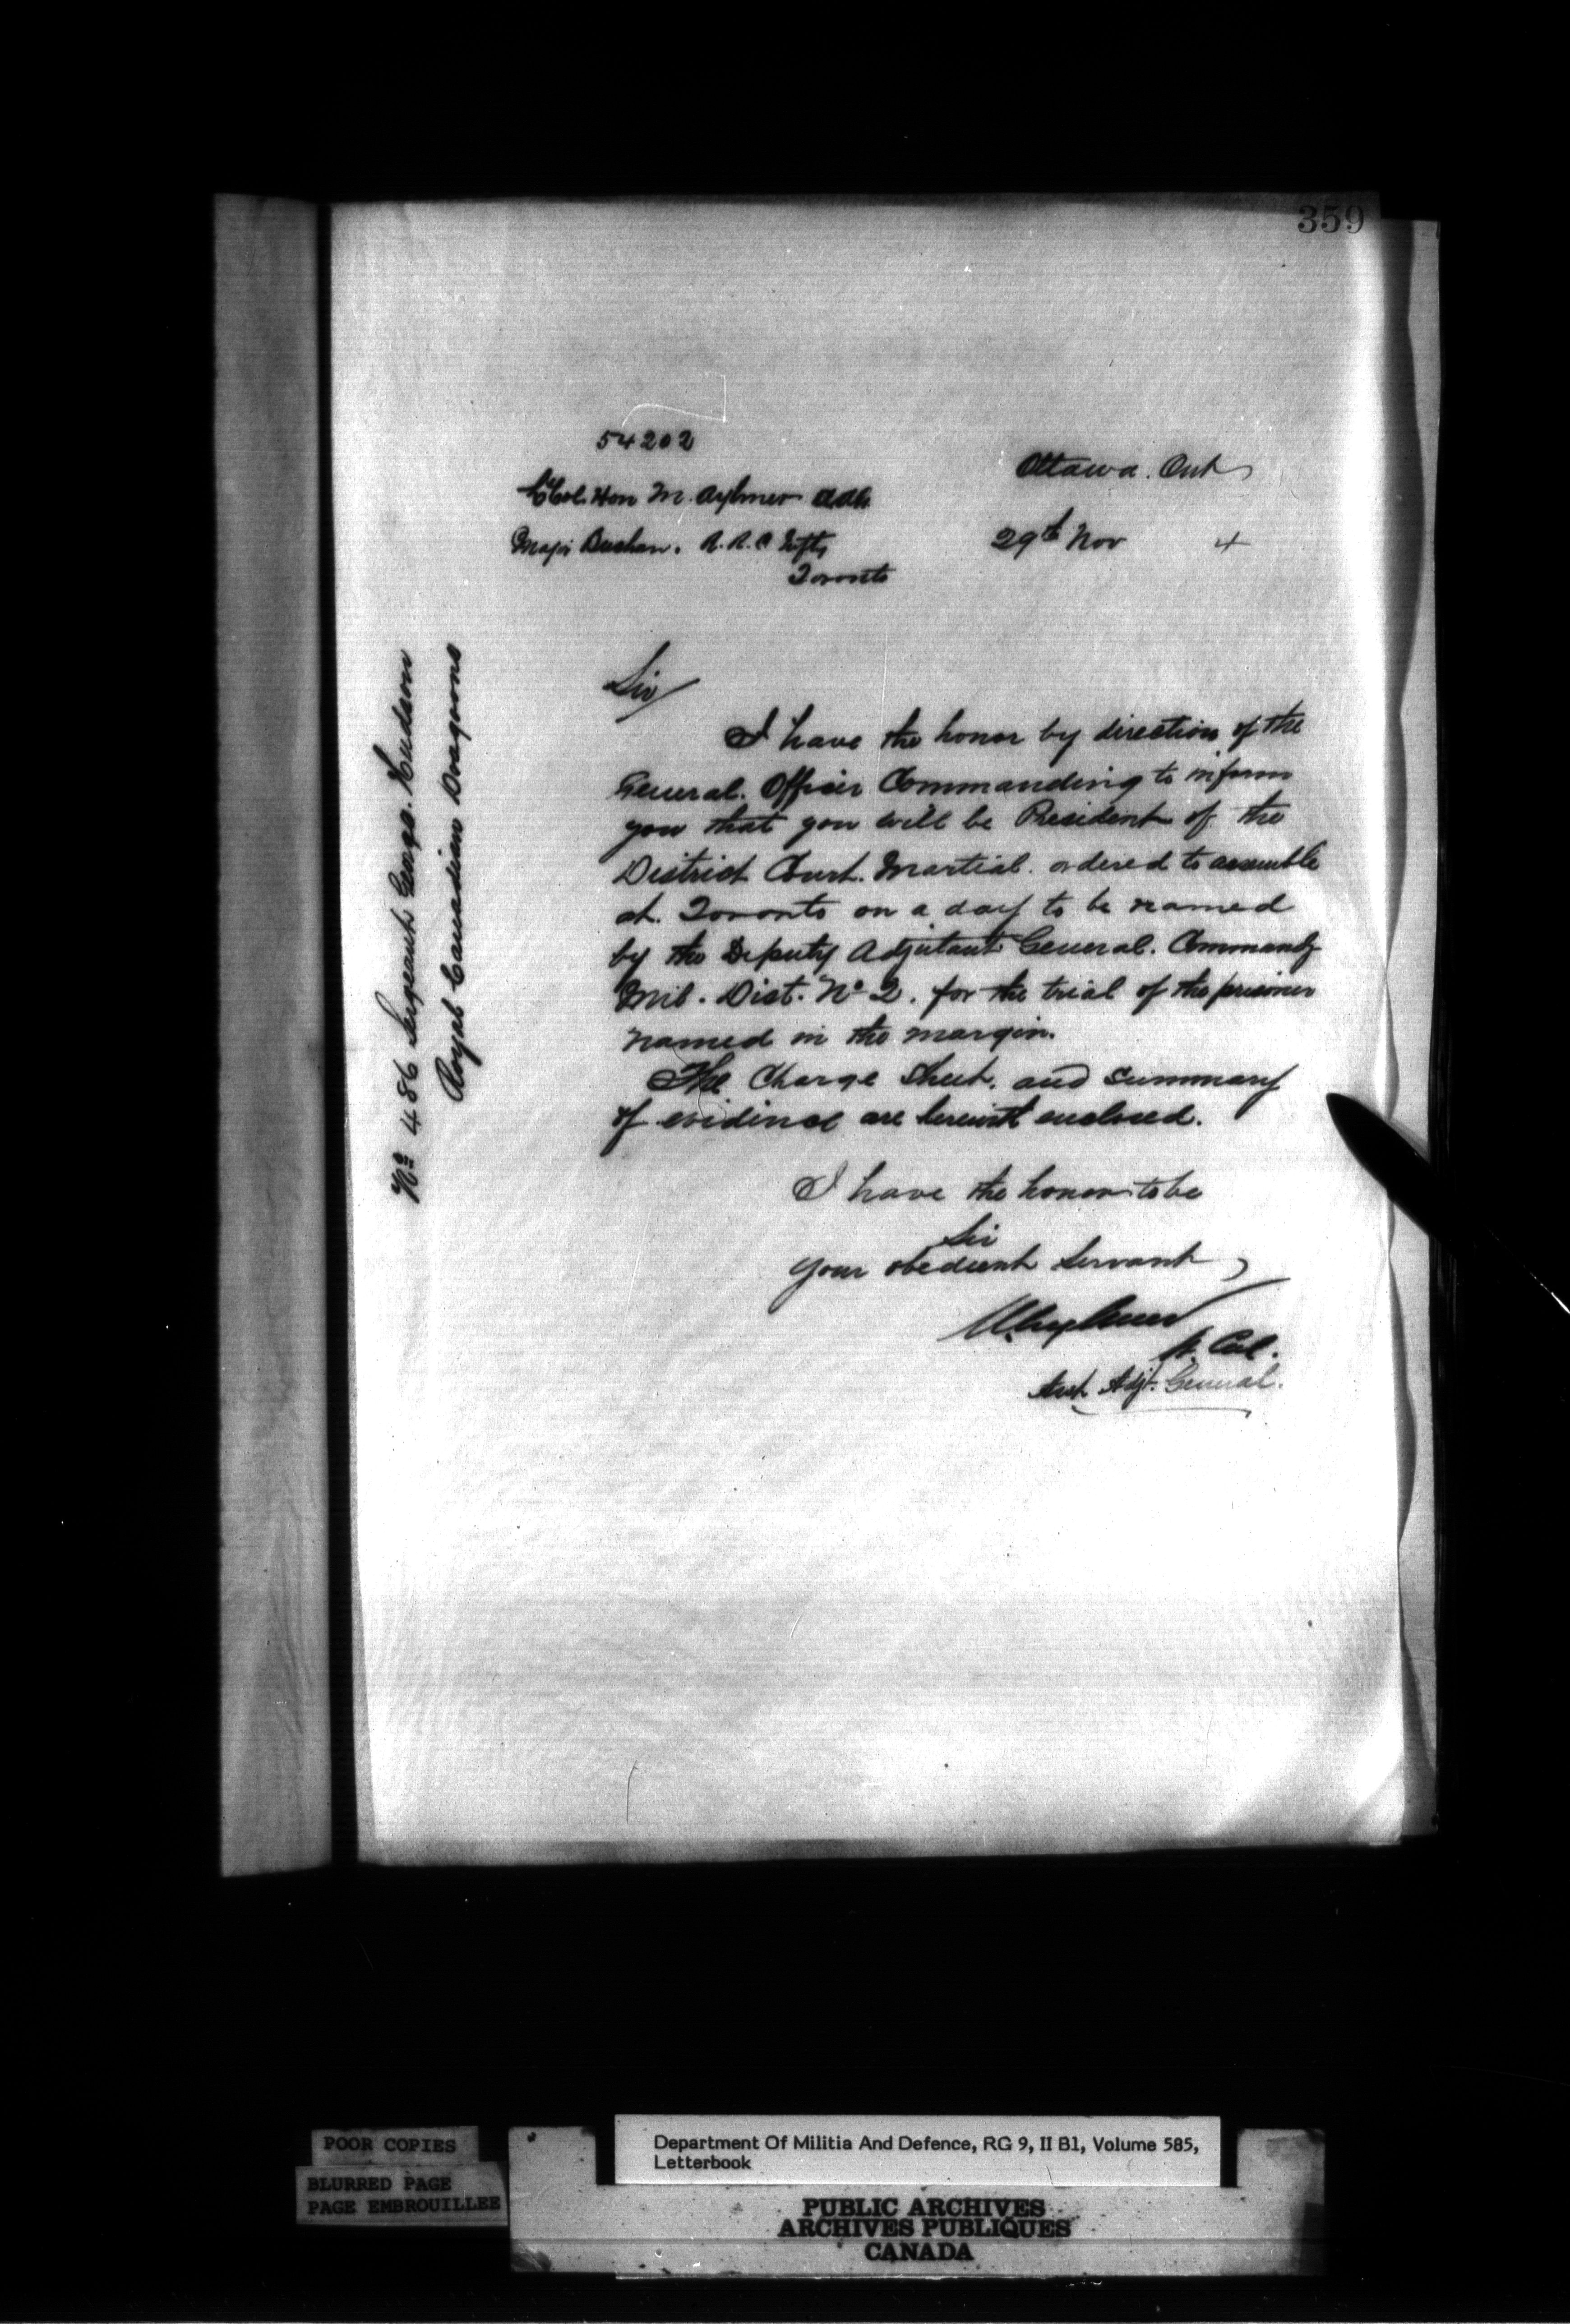 359
54202
Lt Col. Hon M. Aylmer AAG
Ottawa. Ont
Major Buchan. R.R.C Infty
29th Nov 4
Toronto
Sir
I have the honor by direction of the
General. Officer Commanding to inform
you that you will be President of the
District Court. Martial. ordered to assemble
at. Toronto on a day to be named
by the Deputy Adjutant General. Commandg
Mil. Dist. No 2. for the trial of the prisoner
named in the margin.
The Charge Sheet. and Summary
of evidence are herewith enclosed.
I have the honor to be
Sir
Your obedient Servant
MAylmer
Lt. Col.
Asst. Adjt. General.
No 486 Sergeant Hudson
Royal Canadian Dragoons
POOR COPIES
BLURRED PAGE
PAGE EMBROUILLEE
Department Of Militia And Defence, RG 9, II B1, Volume 585,
Letterbook
PUBLIC ARCHIVES
ARCHIVES PUBLIQUES
CANADA